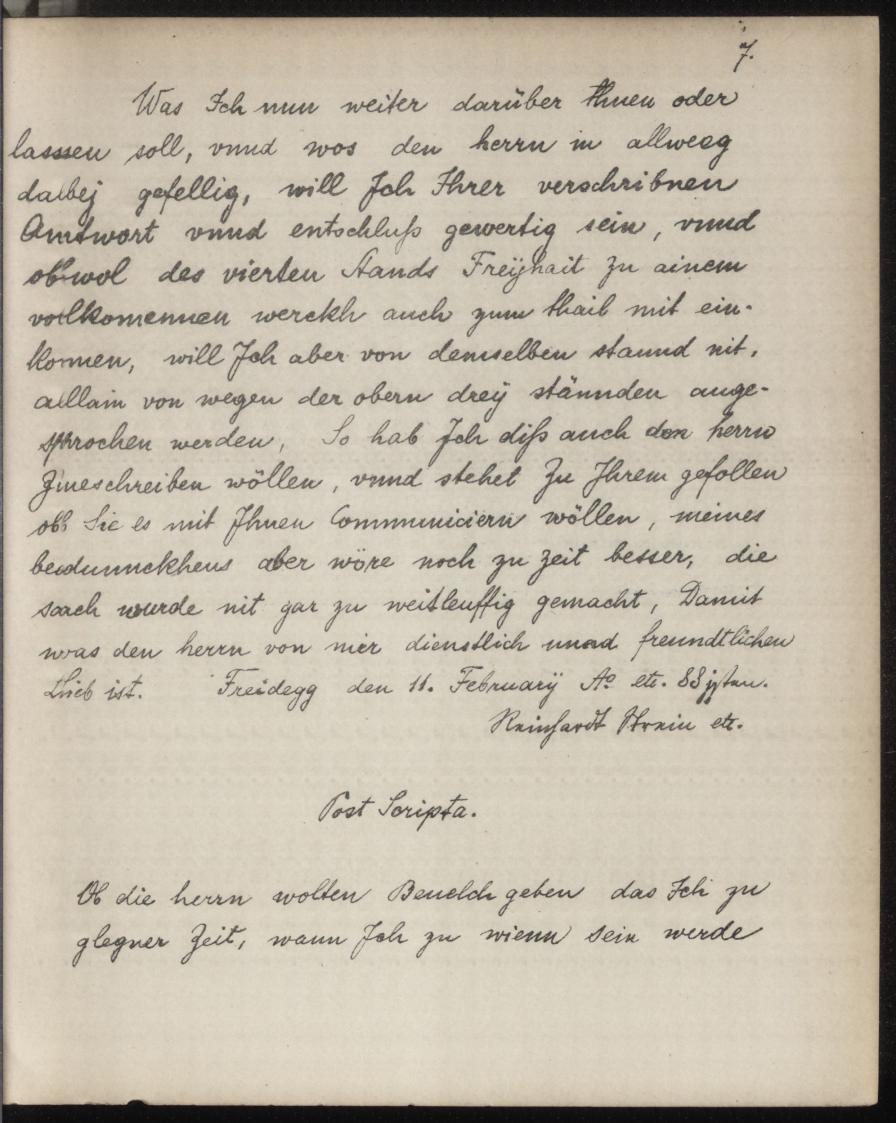 7.
Was Ich nun weiter darüber thuen oder
lasssen soll, vnnd wos den herrn in allweeg
dabej gefellig, will Jch Ihrer verschribnen
Anttwort vnnd entschluß gewertig sein, vnnd
obwol des vierten stands Freÿhait zu ainem
volkomennen werckh auch zum thail mit ein-
komen, will Jch aber von demselben stannd nit,
allain von wegen der obern dreÿ stännden ange-
sprochen werden, So hab Jch diß auch den herrn
Zueschreiben wöllen, vnnd stehet Zu Jhrem gefollen
obb Sie es mit Jhnen Communiciern wöllen, meines
bedunnckhens aber wöre noch zu zeit besser, die
sach wurde nit gar zu weitleuffig gemacht, Damit
was den herrn von mir dienstlich unnd freundtlichen
Lieb ist. Freidegg den 11. Februarÿ Ao etc. 88isten.
Reinhardt Strein etc.
Post Scripta.
Ob die herrn wolten Beuelch geben das Ich zu
glegner Zeit, wann Jch zu wienn sein werde